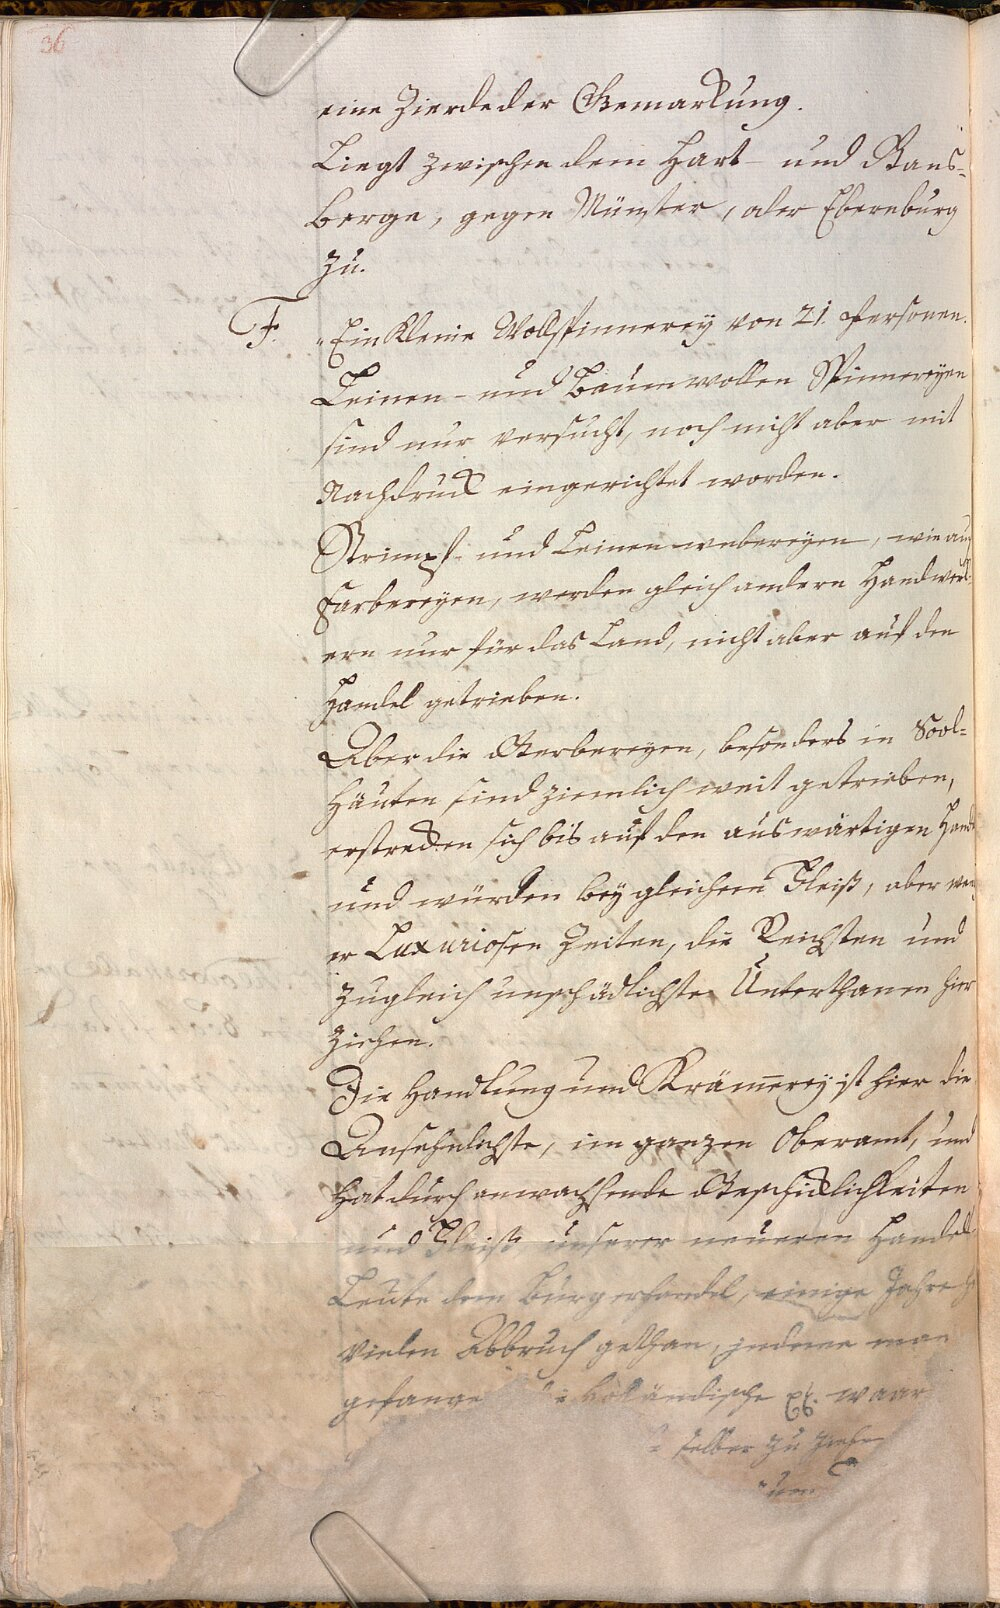 36
eine Zierde der Gemarkung.
Liegt zwischen dem Hart- und Rans-
berge, gegen Münster, oder Ebernburg
zu.
F. Ein kleine Wollspinnerey von 21. Personen.
Leinen- und Baumwollen Spinnereyen
sind nur versucht, noch nicht aber mit
Nachdruck eingerichtet worden.
Strimpf- und Leinenwebereyen, wie auch
Farbereyen, werden gleich andern Handwerk-
ern nur für das Land, nicht aber auf den
Handel getrieben.
Aber die Gerbereyen, besonders in Sool-
Häuten sind ziemlich weit getrieben,
erstrecken sich bis auf den auswärtigen Hand
und würden bey gleichem Fleiß, aber wen
er Luxuriosen Zeiten, die Reichsten und
zugleich unschädlichste Unterthanen hier
ziehen.
Die Handlung und Krämerey ist hier die
Ansehnlichste, im ganzen Oberamt, und
hat durch anwachsende Geschicklichkeiten
und Fleiß unserer neueren Handels-
Leute dem Burgerhandel, einige Jahre
vielen Abbruch gethan, indeme man
gefange Holländische waar
selber zu ziehe